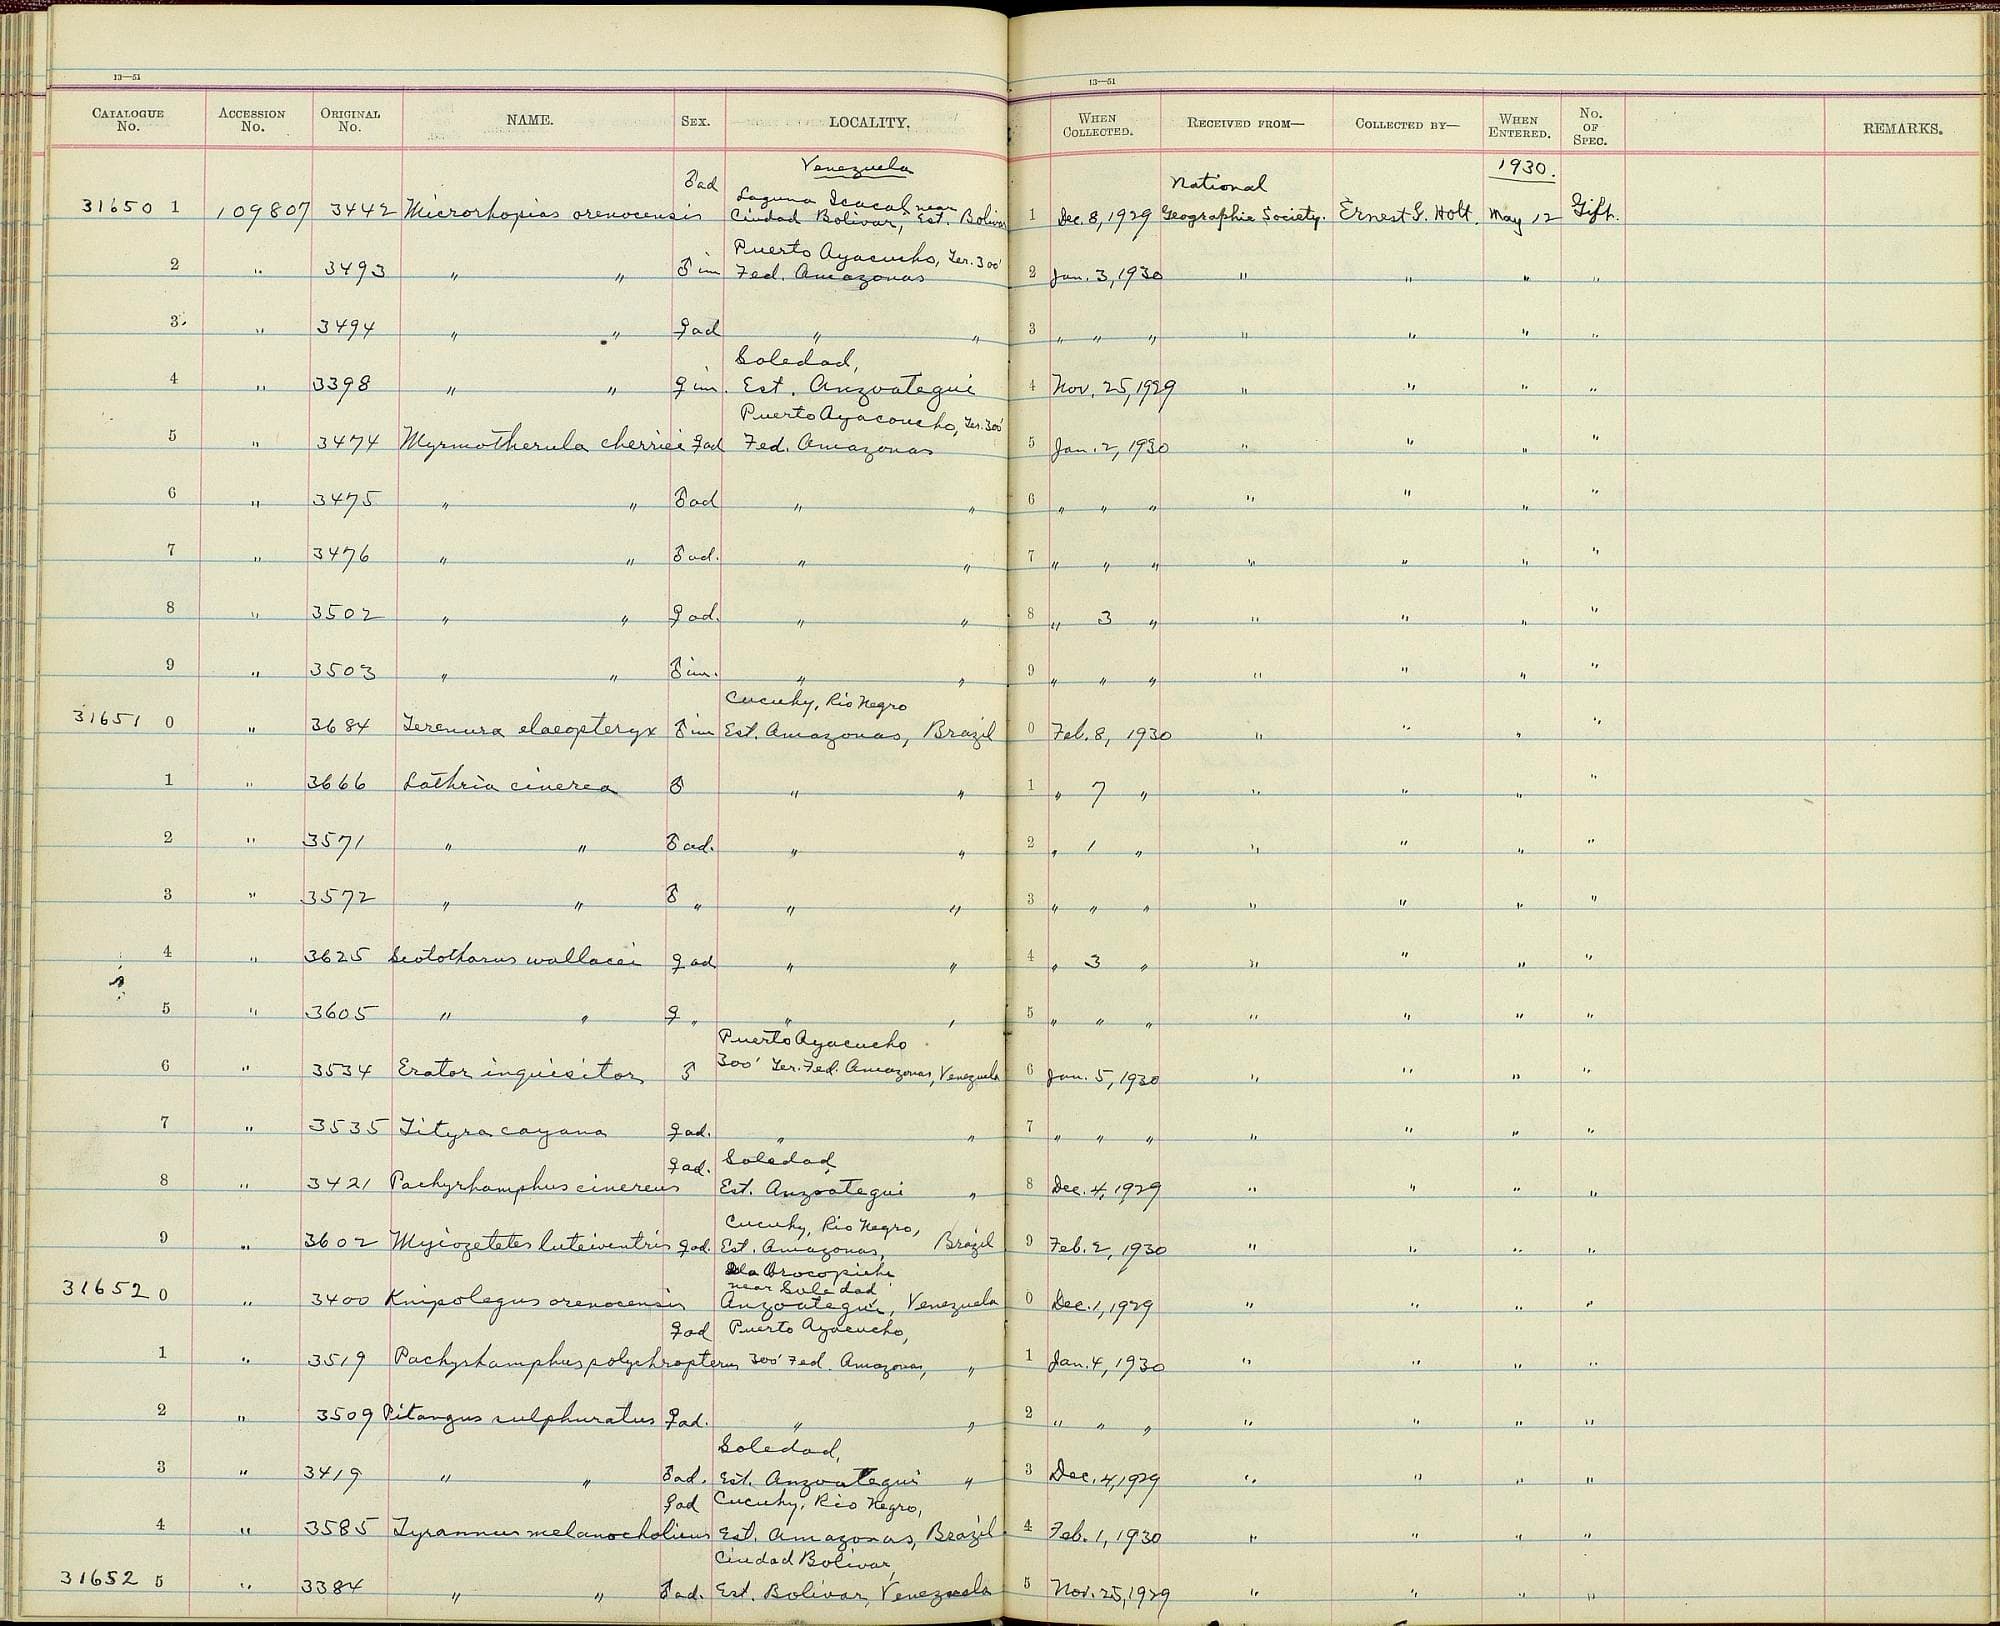 13—51
13—51
CATALOGUE No. ACCESSION No. ORIGINAL No. NAME. SEX. LOCALITY. WHEN COLLECTED. RECEIVED FROM— COLLECTED BY— WHEN ENTERED. No. OF SPEC. REMARKS.
Venezuela 1930.
♂ad Laguna National
31650 1 109807 3442 Microrhopias orenocensis Ciudad Bolivar, near Est. Bolivar 1 Dec. 8, 1929 Geographic Society. Ernest G. Holt. May 12 Gift.
Puerto Ayacucho, Ter. 300'
2 " 3493 " " ♂im Fed. Amazonas 2 Jan. 3, 1930 " " " "
3. " 3494 " " ♀ad " " 3 " " " " " " "
Soledad,
4 " 3398 " " ♀im. Est. Anzoategui 4 Nov. 25, 1929 " " " "
Puerto Ayacoucho, Ter. 300'
5 " 3474 Myrmotherula cherriei ♀ad Fed. Amazonas 5 Jan. 2, 1930 " " " "
6 " 3475 " " ♂ad " " 6 " " " " " " "
7 " 3476 " " ♂ad. " " 7 " " " " " " "
8 " 3502 " " ♀ad. " " 8 " 3 " " " " "
9 " 3503 " " ♂im. " " 9 " " " " " " "
Cucuhy, Rio Negro
31651 0 " 3684 Terenura elaeopteryx ♂im Est. Amazonas, Brazil 0 Feb. 8, 1930 " " " "
1 " 3666 Lathria cinerea ♂ " " 1 " 7 " " " " "
2 " 3571 " " ♂ad. " " 2 " 1 " " " " "
3 " 3572 " " ♂ " " " 3 " " " " " " "
4 " 3625 Scotothorus wallacei ♀ad " " 4 " 3 " " " " "
5 " 3605 " " ♀ " " " 5 " " " " " " "
Puerto Ayacucho
6 " 3534 Erator inquisitor ♂ 300' Ter. Fed. Amazonas, Venezuela 6 Jan. 5, 1930 " " " "
7 " 3535 Tityra cayana ♀ad. " " 7 " " " " " " "
♀ad. Soledad,
8 " 3421 Pachyrhamphus cinereus Est. Anzoategui " 8 Dec. 4, 1929 " " " "
Cucuhy, Rio Negro,
9 " 3602 Myiozetetes luteiventris ♀ad. Est. Amazonas, Brazil 9 Feb. 2, 1930 " " " "
near Soledad
31652 0 " 3400 Knipolegus orenocensis Anzoategui, Venezuela 0 Dec. 1, 1929 " " " "
♀ad Puerto Ayacucho,
1 " 3519 Pachyrhamphus polychropterus 300' Fed. Amazonas, " 1 Jan. 4, 1930 " " " "
2 " 3509 Pitangus sulphuratus ♀ad. " " 2 " " " " " " "
Soledad,
3 " 3419 " " ♂ad. Est. Anzoategui " 3 Dec. 4, 1929 " " " "
♀ad Cucuhy, Rio Negro,
4 " 3585 Tyrannus melanocholicus Est. Amazonas, Brazil 4 Feb. 1, 1930 " " " "
Ciudad Bolivar,
31652 5 " 3384 " " ♂ad. Est. Bolivar, Venezuela 5 Nov. 25, 1929 " " " "